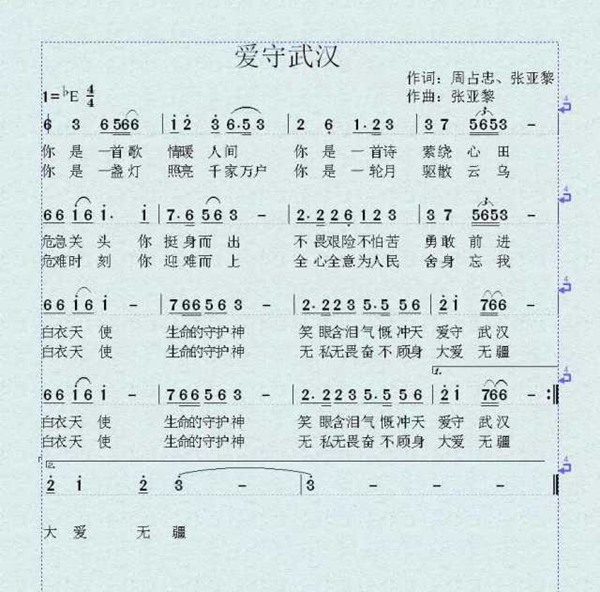 爱守武汉
作词：周占忠、张亚黎
1=♭E 4/4
作曲：张亚黎
6 3 6 5 6 6 | 1 2 3 6·5 3 | 2 6 1·2 3 | 3 7 5 6 5 3 – |
你 是 一首歌 情暖 人间 你 是 一首诗 萦绕 心 田
你 是 一盏灯 照亮 千家万户 你 是 一轮月 驱散 云 乌
6 6 1 6 1· 1 | 7·6 5 6 3 – | 2·2 2 6 1 2 3 | 3 7 5 6 5 3 – |
危急关 头 你 挺身而 出 不 畏艰险不怕苦 勇敢 前 进
危难时 刻 你 迎难而 上 全 心全意为人民 舍身 忘 我
6 6 1 6 1 – | 7 6 6 5 6 3 – | 2·2 2 3 5·5 5 5 6 | 2 1 7 6 6 – |
白衣天 使 生命的守护神 笑 眼含泪气 慨冲天 爱守 武 汉
白衣天 使 生命的守护神 无 私无畏奋 不顾身 大爱 无 疆
1.
6 6 1 6 1 – | 7 6 6 5 6 3 – | 2·2 2 3 5·5 5 5 6 | 2 1 7 6 6 – :‖
白衣天 使 生命的守护神 笑 眼含泪气 慨冲天 爱守 武 汉
白衣天 使 生命的守护神 无 私无畏奋 不顾身 大爱 无 疆
2.
2 1 2 3 – | 3 – – – ‖
大 爱 无 疆